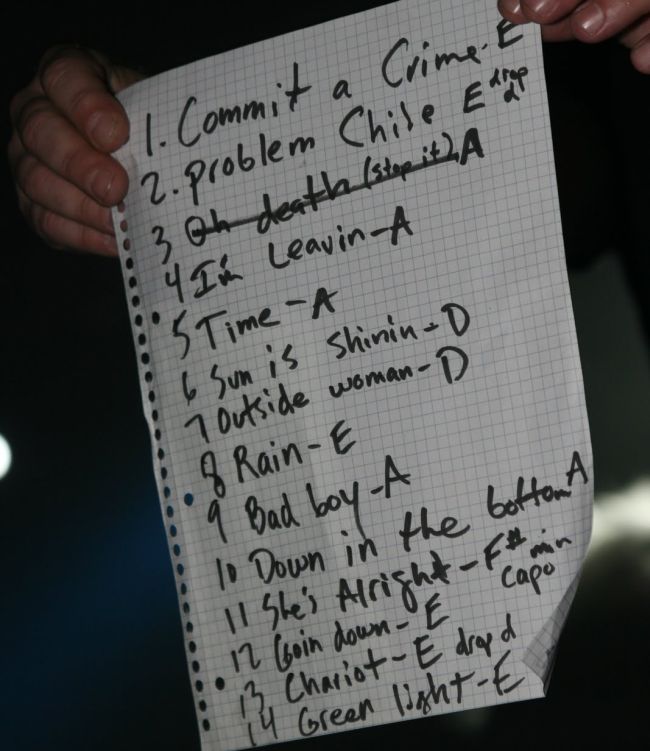 1. Commit a Crime - E
2. problem Chile E drop d
3 Oh death (stop it) A
4 I'm Leavin - A
5 Time - A
6 Sun is shinin - D
7 Outside woman - D
8 Rain - E
9 Bad boy - A
10 Down in the bottom A
11 She's Alright - F# min capo
12 Goin down - E
13 Chariot - E drop d
14 Green light - E